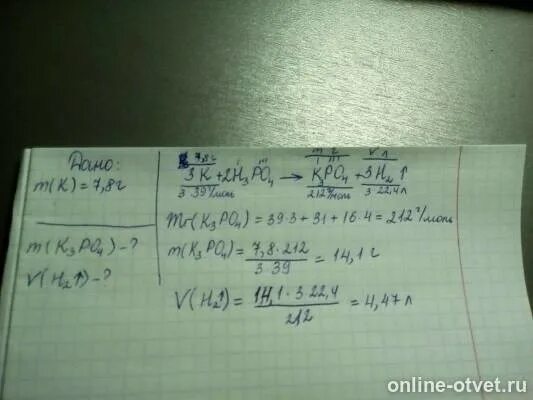 Дано:
m(K) = 7,8г
m(K₃PO₄) - ?
V(H₂↑) - ?
7,8г m г V л
I III I III
3K + 2H₃PO₄ → K₃PO₄ + 3H₂↑
3·39г/моль 212г/моль 3·22,4л
Mr(K₃PO₄) = 39·3 + 31 + 16·4 = 212г/моль
m(K₃PO₄) = 7,8·212 / 3·39 = 14,1г
V(H₂↑) = 14,1·3·22,4 / 212 = 4,47л
online-otvet.ru